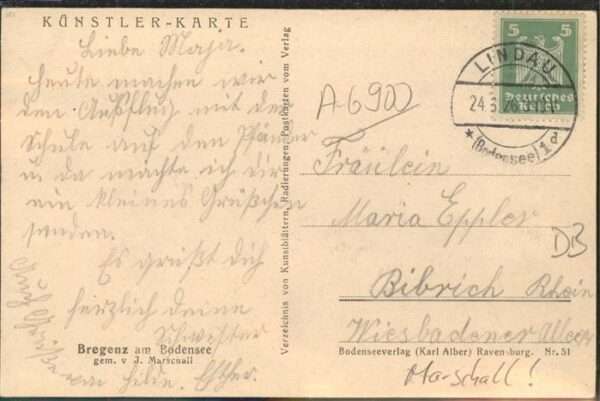 KÜNSTLER-KARTE
Liebe Maja.
heute machen wir
den Ausflug mit der
Schule auf den Pfänder
u. da möchte ich dir
ein kleines Grüßchen
senden.
Es grüßt dich
herzlich deine
Schwister
Esther.
Bregenz am Bodensee
gem. v J. Marschall
Verzeichnis von Kunstblättern, Radierungen, Postkarten vom Verlag
5 5
Deutsches Reich
LINDAU
24.3.26
(Bodensee) 1 d
A-6902
Fräulein
Maria Eppler
Bibrich Rhein
Wiesbadener Allee
DB
Bodenseeverlag (Karl Alber) Ravensburg. Nr. 51
Marschall!